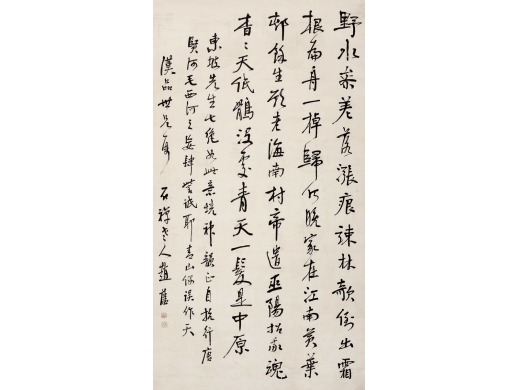 野水參差落漲痕疎林欹倒出霜
根扁舟一棹歸何處家在江南黃葉
邨餘生欲老海南村帝遣巫陽招我魂
杳〻天低鶻沒處青天一髮是中原
東坡先生七絕如此意境神韻正自抗行唐
賢何毛西河之妄肆詆耶青山誤作天
漢品世兄屬 石禪老人趙藩